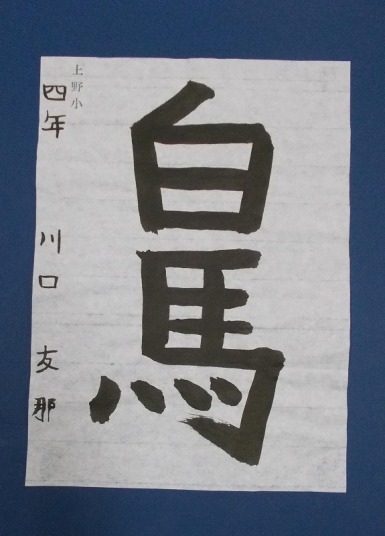 白馬
上野小
四年 川口 友那